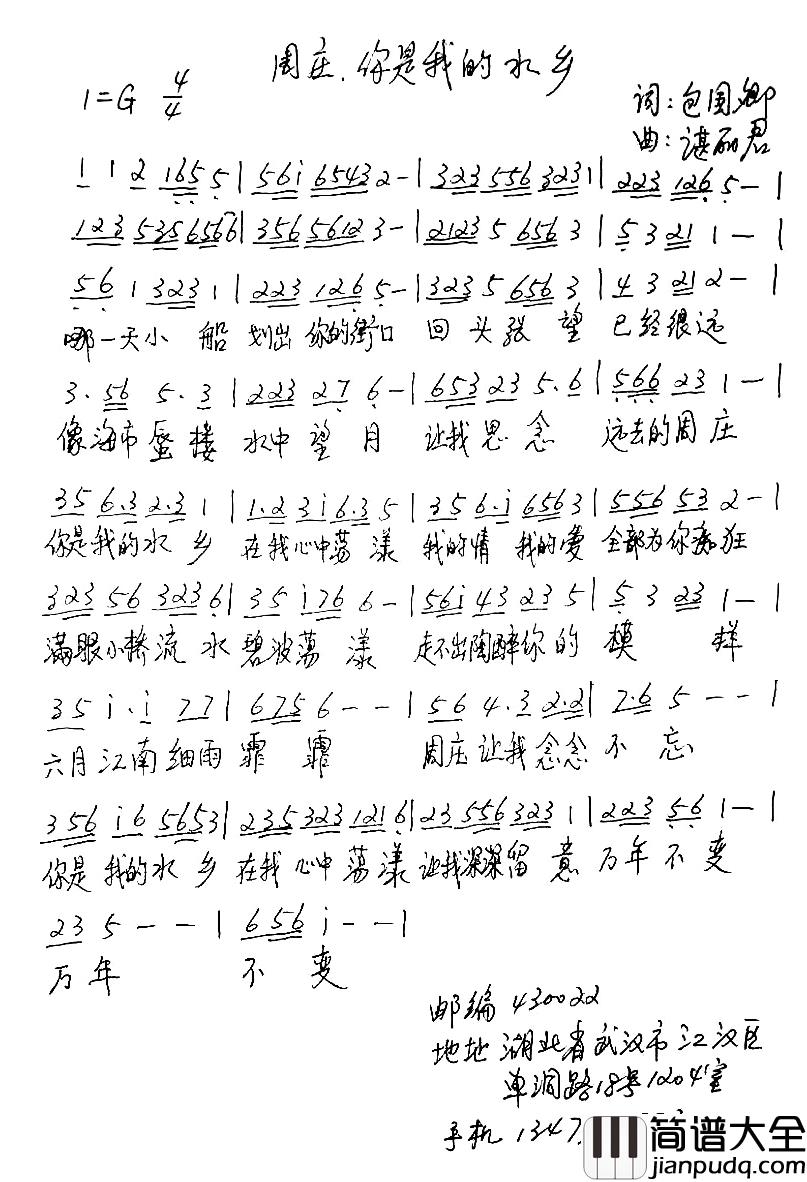 周庄.你是我的水乡
1=G 4/4
词:包国卿
曲:谌丽君
1 1 2 165 5 | 56i 6543 2 - | 323 556 323 1 | 223 126 5 - |
123 535 6566 | 356 5612 3 - | 2123 5 656 3 | 5 3 21 1 - |
56 1 323 1 | 223 126 5 - | 323 5 656 3 | 4 3 21 2 - |
哪一天小船 划出你的街口 回头张望 已经很远
3. 56 5. 3 | 223 27 6 - | 653 23 5. 6 | 566 23 1 - |
像海市蜃楼 水中望月 让我思念 远去的周庄
35 6.3 2.3 1 | 1.2 3i 6.3 5 | 35 6.i 656 3 | 556 53 2 - |
你是我的水乡 在我心中荡漾 我的情 我的爱 全部为你痴狂
323 56 323 6 | 35 i76 6 - | 56i 43 23 5 | 5 3 23 1 - |
满眼小桥流水 碧波荡漾 走不出陶醉你的模样
35 i. i 77 | 675 6 - - | 56 4. 3 2.2 | 7.6 5 - - |
六月江南细雨霏霏 周庄让我念念不忘
356 i6 5653 | 235 323 121 6 | 23 556 323 1 | 223 56 1 - |
你是我的水乡 在我心中荡漾 让我深深留意 万年不变
23 5 - - | 656 i - - |
万年 不变
邮编 430022
地址 湖北省武汉市江汉区
单洞路18号1204室
手机 1347
简谱大全
jianpudq.com